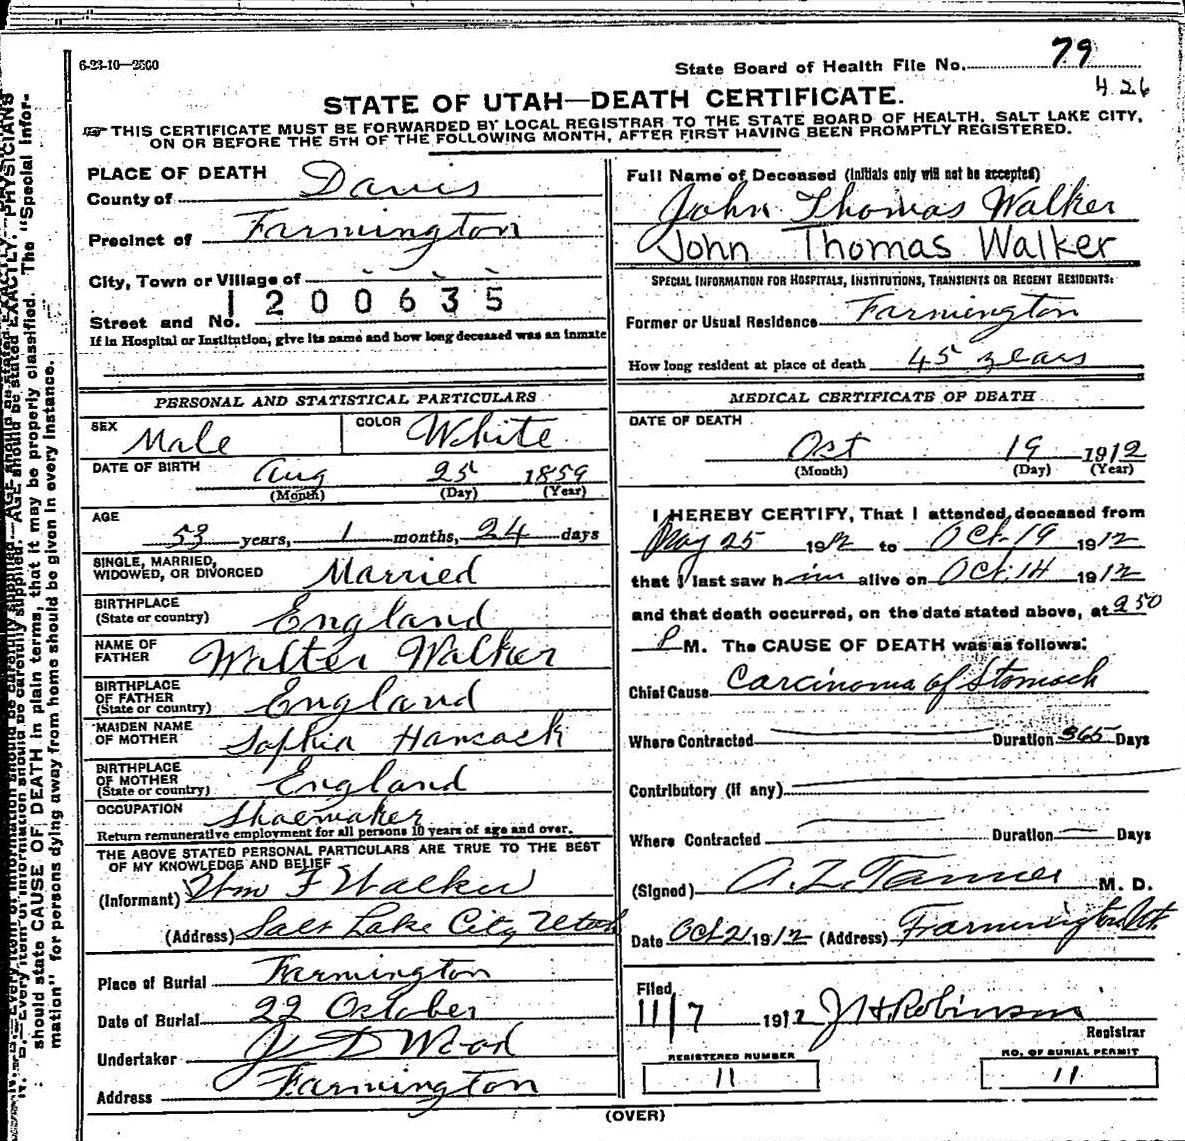 6-23-10—2500
State Board of Health File No. 79
426
STATE OF UTAH—DEATH CERTIFICATE.
THIS CERTIFICATE MUST BE FORWARDED BY LOCAL REGISTRAR TO THE STATE BOARD OF HEALTH, SALT LAKE CITY,
ON OR BEFORE THE 5TH OF THE FOLLOWING MONTH, AFTER FIRST HAVING BEEN PROMPTLY REGISTERED.
PLACE OF DEATH
County of Davis
Precinct of Farmington
City, Town or Village of
1200635
Street and No.
If in Hospital or Institution, give its name and how long deceased was an inmate
PERSONAL AND STATISTICAL PARTICULARS
SEX Male COLOR White
DATE OF BIRTH Aug 25 1859
(Month) (Day) (Year)
AGE
53 years, 1 months, 24 days
SINGLE, MARRIED,
WIDOWED, OR DIVORCED Married
BIRTHPLACE
(State or country) England
NAME OF
FATHER Walter Walker
BIRTHPLACE
OF FATHER
(State or country) England
MAIDEN NAME
OF MOTHER Sophia Hancock
BIRTHPLACE
OF MOTHER
(State or country) England
OCCUPATION Shoemaker
Return remunerative employment for all persons 10 years of age and over.
THE ABOVE STATED PERSONAL PARTICULARS ARE TRUE TO THE BEST
OF MY KNOWLEDGE AND BELIEF
(Informant) Wm F Walker
(Address) Salt Lake City Utah
Place of Burial Farmington
Date of Burial 22 October
Undertaker J D Wood
Address Farmington
Full Name of Deceased (Initials only will not be accepted)
John Thomas Walker
John Thomas Walker
SPECIAL INFORMATION FOR HOSPITALS, INSTITUTIONS, TRANSIENTS OR RECENT RESIDENTS:
Former or Usual Residence Farmington
How long resident at place of death 45 years
MEDICAL CERTIFICATE OF DEATH
DATE OF DEATH
Oct 19 1912
(Month) (Day) (Year)
I HEREBY CERTIFY, That I attended deceased from
May 25 1912 to Oct. 19 1912
that I last saw him alive on Oct. 14 1912
and that death occurred, on the date stated above, at 250
P M. The CAUSE OF DEATH was as follows:
Chief Cause Carcinoma of Stomach
Where Contracted Duration 365 Days
Contributory (if any)
Where Contracted Duration Days
(Signed) A. Z. Tanner M. D.
Date Oct 21 1912 (Address) Farmington Ut
Filed
11/7 1912 J H Robinson
Registrar
REGISTERED NUMBER
11
NO. OF BURIAL PERMIT
11
(OVER)
AGE should be stated EXACTLY. PHYSICIANS
should state CAUSE OF DEATH in plain terms, that it may be properly classified. The "Special Infor-
mation" for persons dying away from home should be given in every instance.